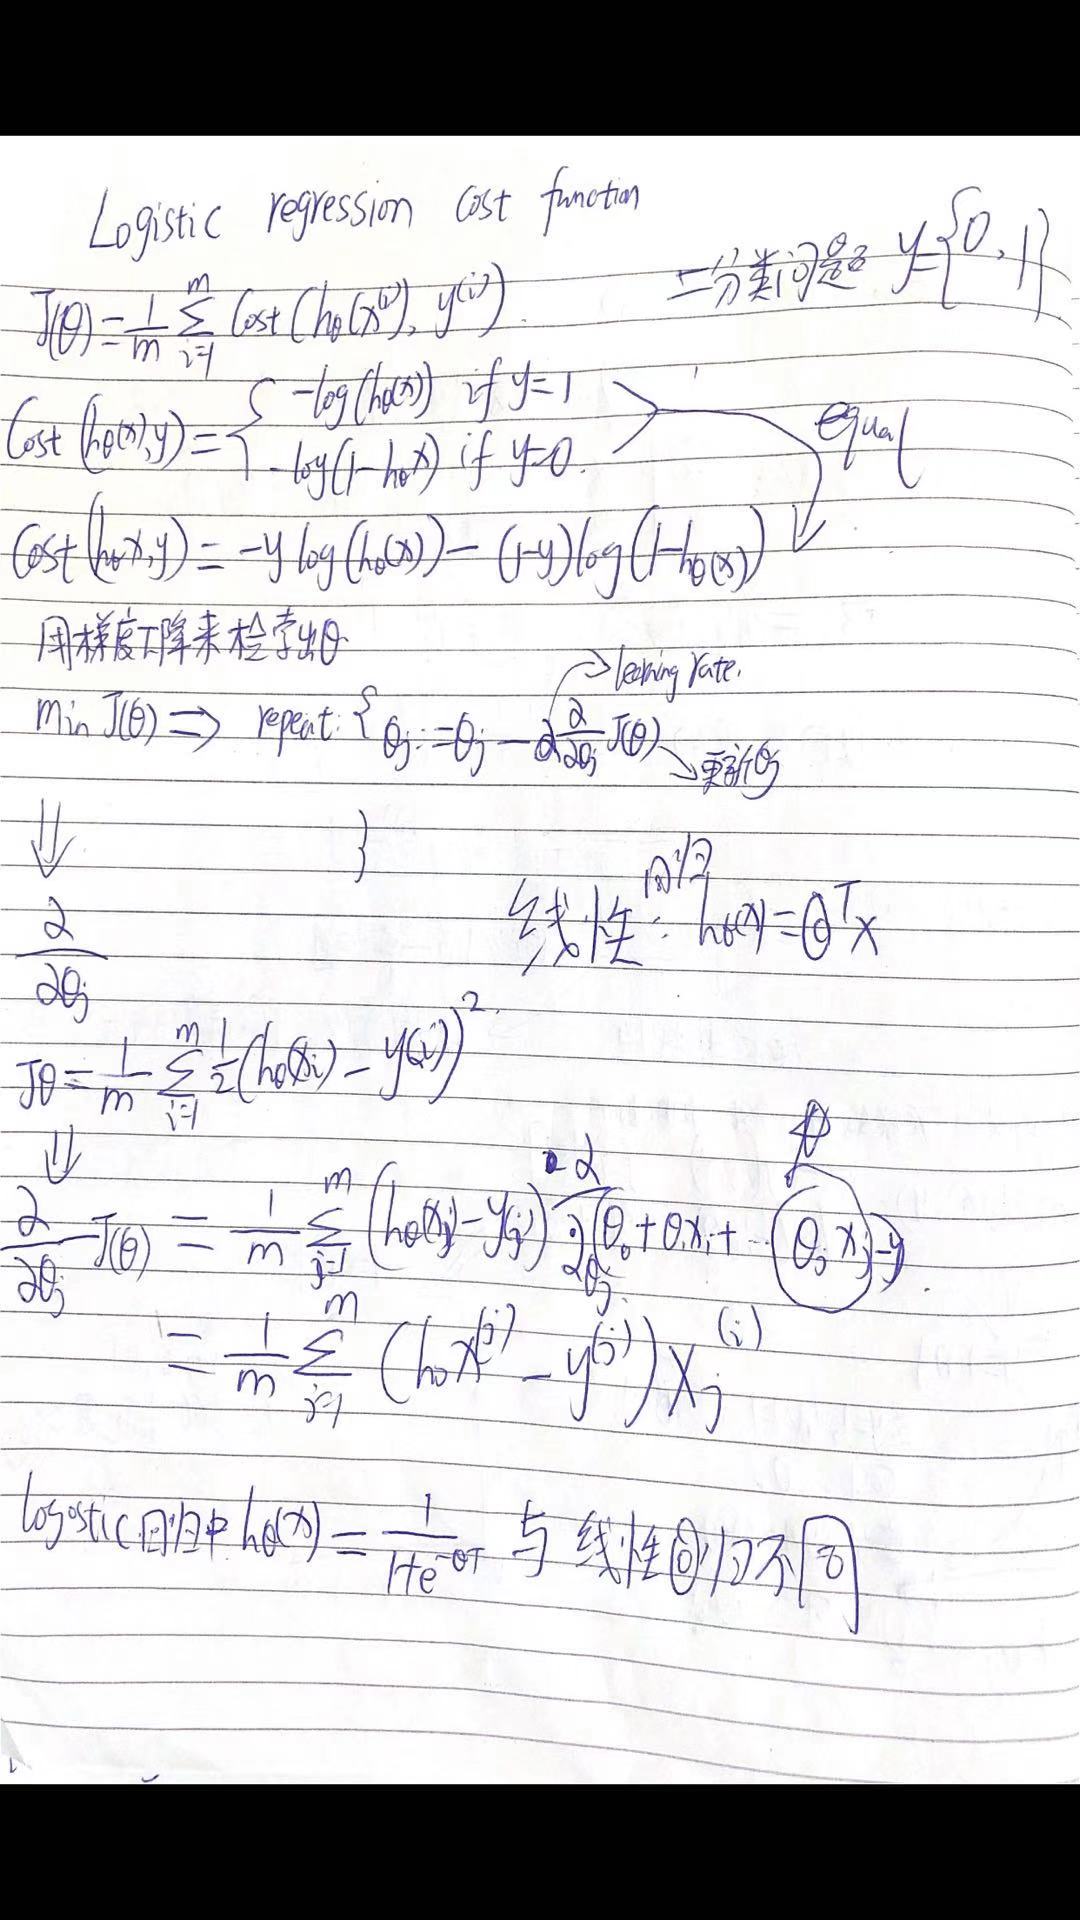 Logistic regression cost function
二分类问题 y={0,1}
J(θ)=1/m Σ_{i=1}^{m} Cost(hθ(x^(i)), y^(i))
Cost(hθ(x),y)={ -log(hθ(x)) if y=1
-log(1-hθx) if y=0.
equal
Cost(hθx,y)=-y log(hθ(x))-(1-y)log(1-hθ(x))
用梯度下降来检索出θ
learning rate.
min J(θ) ⇒ repeat: { θj:=θj-α ∂/∂θj J(θ)
更新θj
⇓ }
线性回归: hθ(x)=θ^T x
∂/∂θj
Jθ=1/m Σ_{i=1}^{m} 1/2(hθ(xi)-y(i))^2
⇓
∂/∂θj J(θ)=1/m Σ_{j=1}^{m} (hθ(xj)-y(j)) ∂/∂θj (θ0+θ1x1+…θjxj-y)
=1/m Σ_{j=1}^{m} (hθx^(j)-y^(j))xj^(i)
Logostic回归中hθ(x)=1/(1+e^-θT) 与线性回归不同